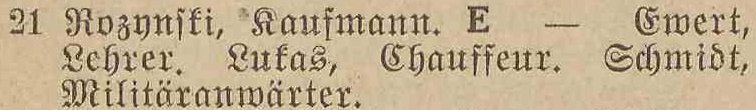 21 Rozynski, Kaufmann. E — Ewert,
Lehrer. Lukas, Chauffeur. Schmidt,
Militäranwärter.